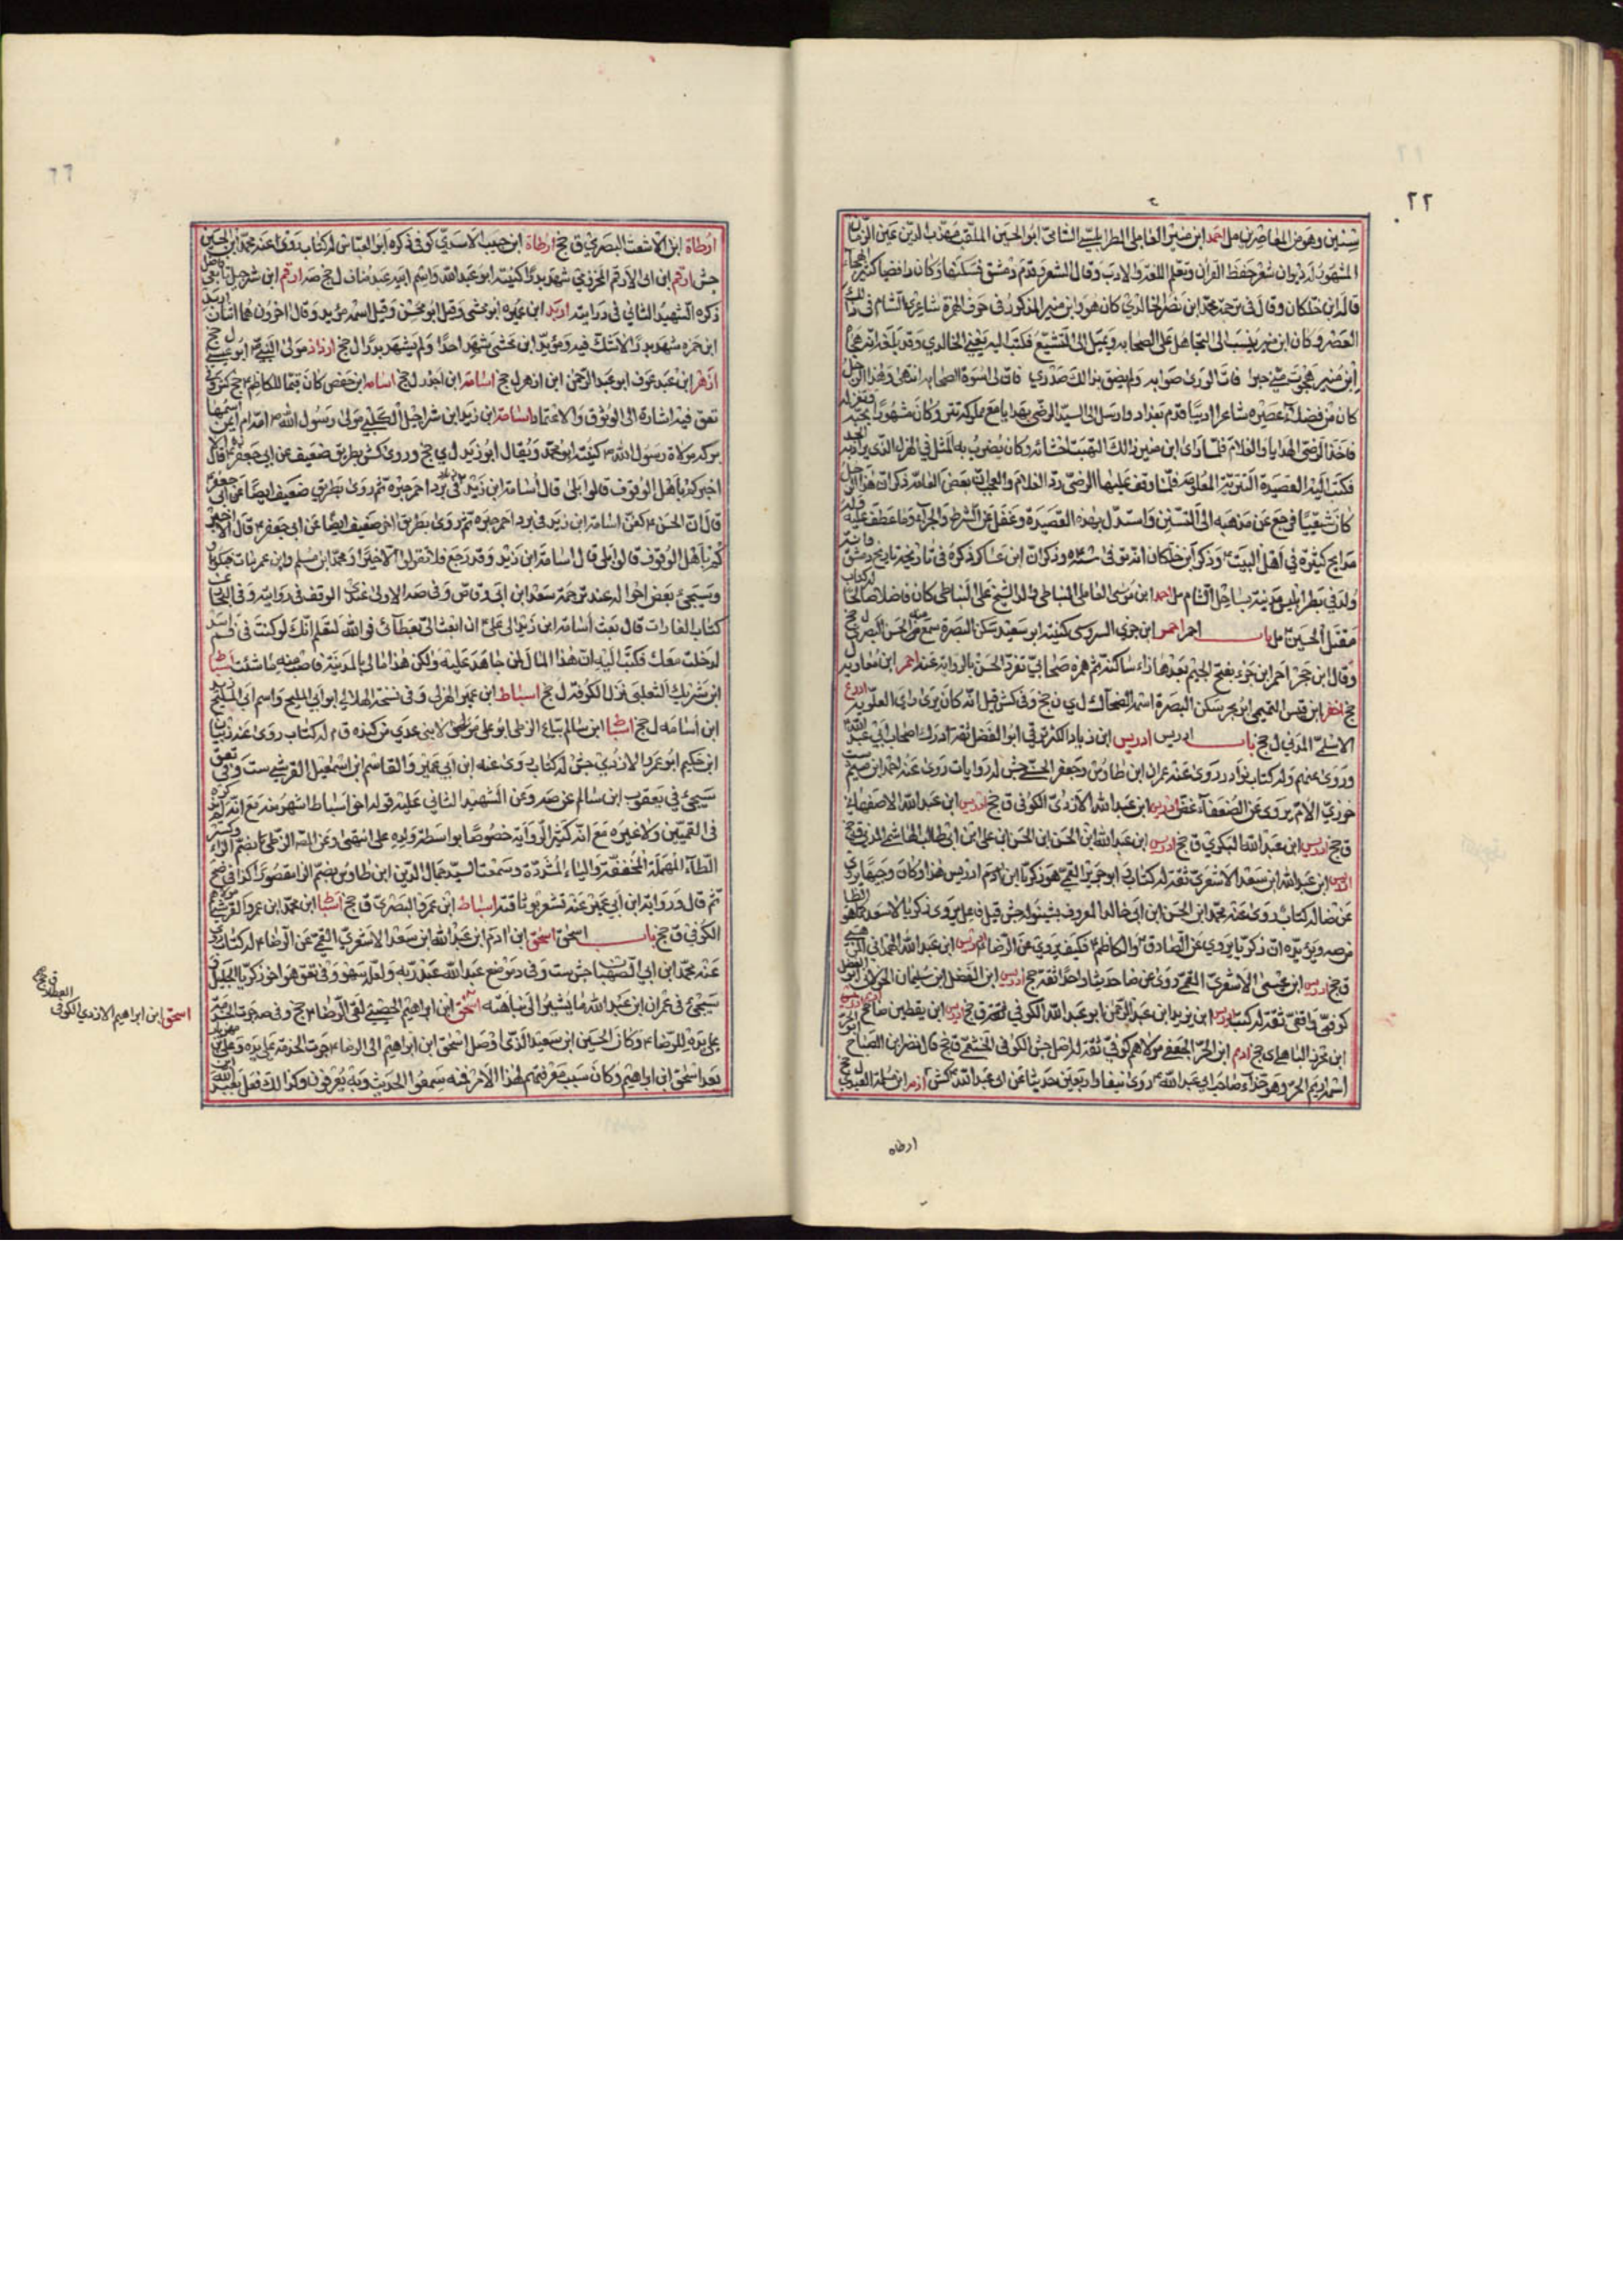 ٢٢
سنين وهو من المعاصرين مل احمد ابن منير العاملى الطرابلسى الشامى ابو الحسين الملقب مهذب الدين عين الزمان
المشهور له ديوان شعر حفظ القرآن وتعلم اللغة والادب وقال الشعر وقدم دمشق فسكنها وكان رافضيا كثير الهجاء
قاله ابن خلكان وقال فى ترجمة محمد ابن نصر الخالدى كان هو وابن منير المذكور فى شاعرى الشام فى ذلك
العصر وكان ابن منير ينسب الى التحامل على الصحابه ويميل الى التشيع فكتب اليه يعنى الخالدي وقد بلغه انه هجاه
ابن منير هجوت منى حبرا فات الورى صوابه ولم يضق بذالك صدري فان لى اسوة الصحابه انتهى وهذا الرجل
كان من فضلاء عصره شاعرا اديبا قدم بغداد وارسل الى السيد الرضى بهدايا مع مملوكه تتر وكان مشهورا
فاخذ الرضى الهدايا والغلام فلما راى ابن منير ذالك التهبت احشائه وكان يضرب به المثل فى الهزل الذى يراد به الجد
فكتب اليه القصيدة التترية المعلومة فلما وقف عليها الرضى رد الغلام بعض العامه ذكر ان هذا الرجل
كان شيعيا فرجع عن مذهبه الى التسنن واستدل بهذه القصيدة وغفل عن الشرط والجزاء وما عطف عليه وله
مدايح كثيرة فى اهل البيت وذكر ابن خلكان انه توفى وذكر ان ابن عساكر ذكره فى تاريخ دمشق
ولد فى بطرابلس مدينة بساحل الشام مل احمد ابن موسى العاملى النباطى والد الشيخ على النباطى كان فاضلا صالحا له كتاب
مقتل الحسين مل باب احمر احمر ابن جزي السدوسى كنيته ابو سعيد سكن البصرة سمع منه الحسن البصري ل جخ
وقال ابن حجر احمر ابن جزء بفتح الجيم بعدها زاء ساكنة ثم همزه صحابي تفرد الحسن بالرواية عنه احمر ابن معاوية ل
جخ احنف ابن قيس التميمي ابو بحر سكن البصرة اسمه الضحاك ل ي ن جخ وفى كش قيل انه كان يرى راى العلوية ادرع
الاسلمى المدني ل جخ باب ادريس ادريس ابن زياد الكفرثوثى ابو الفضل ثقة ادرك اصحاب ابي عبد الله
وروى عنهم وله كتاب نوادر روى عنه عمران ابن طاوس وجعفر الحسنى جش له روايات روى عنه احمد ابن ميثم ست
خوزي الام يروى عن الضعفاء غض ادريس ابن عبد الله الازدى الكوفى ق جخ ادريس ابن عبد الله الاصفهانى
ق جخ ادريس ابن عبد الله البكري ق جخ ادريس ابن عبد الله ابن الحسن ابن الحسن ابن على ابن ابى طالب الهاشمى المدنى ق جخ
ادريس ابن عبد الله ابن سعد الاشعري ثقة له كتاب ابو جرير القمى هو زكريا ابن ادريس هذا وكان وجيها يروى
عن ضا له كتاب روى عنه محمد ابن الحسن ابن ابى خالد المعروف بشينوله جش
من صه ويؤيده ان زكريا يروى عن الصادق والكاظم فكيف يروى عن الرضا ادريس ابن عبد الله الهمدانى
ق جخ ادريس ابن عيسى الاشعري القمى روى عن ضا حديثا واحدا ثقة جخ ادريس ابن الفضل ابن سليمان الخولانى ابو الفضل
كوفى واقفى ثقة له كتب ادريس ابن يزيد ابن عبد الرحمن ابو عبد الله الكوفي ق جخ ادريس ابن يقطين ضا جخ
الباهلى ى جخ ادم ابن الحر الجعفى مولاهم كوفى ثقة له اصل جش الكوفى الخثعمى ق جخ قال نضر ابن الصباح
اسمه اديم الحر وهو حذاء صاحب ابي عبد الله روى نيفا واربعين حديثا عن ابى عبد الله كش ازمر ابن سلمة العبدي ل جخ
ارطاه
ارطاة ابن الاشعث البصري ق جخ ارطاة ابن حبيب الاسدي كوفى ذكره ابو العباس له كتاب روى عنه محمد ابن الحسين
جش ارقم ابن ابى الارقم المخزومي شهد بدرا كنيته ابو عبد الله واسم ابيه عبد مناف ل جخ صه ارقم ابن شرحبيل تابعى فاضل
ذكره الشهيد الثاني فى درايته اربد ابن حميره ابو مخشى وقيل ابو محسن وقيل اسمه سويد وقال اخرون هما اثنان اربد
ابن حمزه شهد بدرا لا شك فيه وسويد ابن مخشى شهد احدا ولم يشهد بدرا ل جخ ازداذ مولى النبى ابو عيسى ل جخ
ازهر ابن عبد عوف ابو عبد الرحمن ابن ازهر ل جخ اسامة ابن اخدر ل جخ اسامه ابن حفص كان قيما للكاظم جخ كش وفى
تعق فيه اشاره الى الوثوق والاعتماد اسامة ابن زيد ابن شراحيل الكلبي مولى رسول الله امه ام ايمن اسمها
بركه مولاة رسول الله كنيته ابو محمد ويقال ابو زيد ل ي جخ وروى كش بطريق ضعيف عن ابى جعفر انه قال الا
اخبركم باهل الوقوف قالوا بلى قال اسامة ابن زيد ثم روى بطريق ضعيف ايضا عن ابى جعفر
قال ان الحسن كفن اسامة ابن زيد فى برد احمر حبره ثم روى بطريق اخر ضعيف ايضا عن ابى جعفر قال الا اخبركم
باهل الوقوف قالوا بلى قال اسامة ابن زيد وقد رجع فلا تقولوا الا خيرا ومحمد ابن مسلم وابن عمر مات منكوبا
وسيجئ بعض احواله عند ترجمة سعد ابن ابى وقاص وفى صه الاولى عندى الوقف فى روايته وفى البحار عن
كتاب الغارات قال بعث اسامة ابن زيد الى على ان ابعث الى بعطائى فوالله لتعلم انك لو كنت فى فم اسد
لدخلت معك فكتب اليه ان هذا المال لمن جاهد عليه ولكن هذا مالى بالمدينة فاصب منه ما شئت اسباط
ابن شريك الثعلبى نزل الكوفه ل جخ اسباط ابن عمير الهزلى وفى نسخة الهلالى ابو ابى المليح واسم ابى المليح زيد
ابن اسامه ل جخ اسباط ابن سالم بياع الزطى ابو على مولى بنى عدي من كنده ق م له كتاب روى عنه ذبيان
ابن حكيم ابو عمرو الازدي جش له كتاب روى عنه ابن ابى عمير والقاسم ابن اسمعيل القرشى ست وفى تعق
سيجئ فى يعقوب ابن سالم عن صه وعن الشهيد الثاني عليه قوله اخو اسباط اشهر منه مع انه لم يذكره
فى القسمين ولا غيره مع انه كثير الرواية خصوصا بواسطة ولده على انتهى وعن الزطى بضم الزاء وكسر
الطاء المهملة المخففة والياء المشددة وسمعت السيد جمال الدين ابن طاوس بضم الزاء مقصورا كذا فى ضح
ثم قال ورواية ابن ابى عمير عنه تشعر بوثاقته اسباط ابن عمرو البصرى ق جخ اسباط ابن محمد ابن عمرو القرشى مولاهم
الكوفى ق جخ باب اسحق اسحق ابن ادم ابن عبد الله ابن سعد الاشعري القمى عن الرضا له كتاب روى
عنه محمد ابن ابي الصهبان جش ست وفى موضع عبد الله عبد ربه ولعله سهو وفى تعق هو اخو زكريا الجليل و
سيجئ فى عمران ابن عبد الله ما يشير الى نباهته اسحق ابن ابراهيم الحضينى لقى الرضا جخ وفى صه جرت الخدمة
على يده للرضا وكان الحسين ابن سعيد الذى اوصل اسحق ابن ابراهيم الى الرضا جرت الخدمة على يده وعلى ابن مهزيار
بعد اسحق ابن ابراهيم وكان سبب معرفتهم لهذا الامر فمنه سمعوا الحديث وبه يعرفون وكذالك فعل بعبد الله ابن
اسحق ابن ابراهيم الازدي الكوفى العطار ق جخ